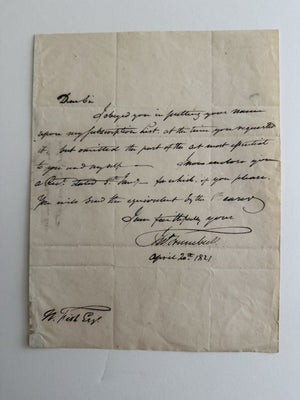 Dear Sir
I obeyed you in putting your name
upon my subscription list. at the time you requested
it. but omitted the part of the act most essential
to you and myself — I now enclose you
a Rect. dated 5th Jany — for which if you please.
You will send the equivalent by the Bearer
I am faithfully yours
Jno Trumbull
April 20th 1821
N. Fish Esqr.